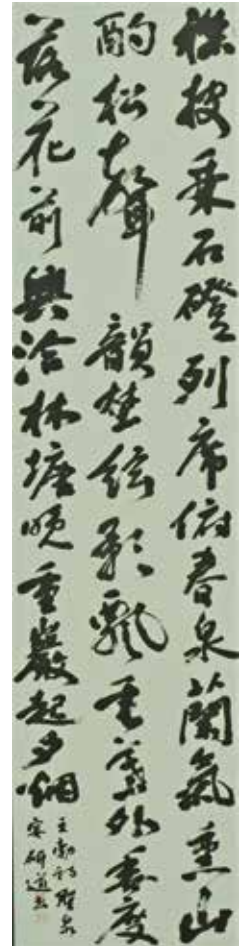 襟披乘石磴列席俯春泉蘭氣熏山
酌松聲韻埜絃影飄垂葉外香度
落花前興洽林塘晚重巖起夕烟
王勃詩聖泉
宴研道書